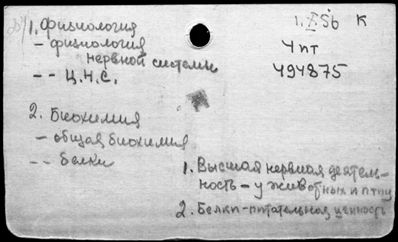 1. Физиология
- физиология
нервной системы
- - Ц.Н.С.
2. Биохимия
- общая биохимия
- - белки
1. X 56 К
4 пт
494875
1. Высшая нервная деятель-
ность - у животных и птиц
2. Белки - питательная ценность